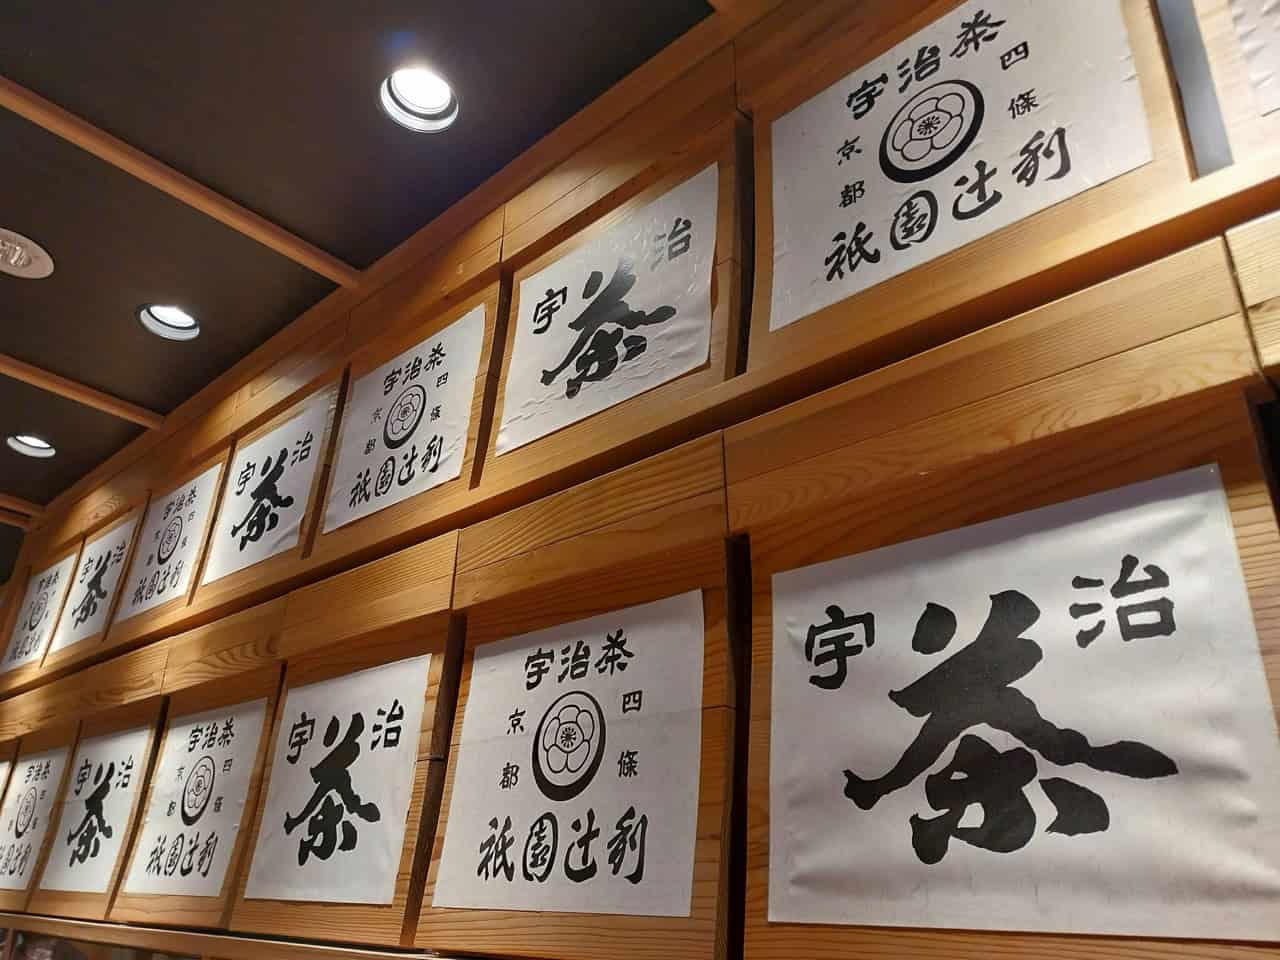 宇治茶
京都
四條
祇園辻利
宇治
茶
宇治茶
京都
四條
祇園辻利
宇治
茶
宇治茶
京都
四條
祇園辻利
宇治
茶
宇治茶
京都
四條
祇園辻利
宇治茶
四條
京都
祇園辻利
宇治
茶
宇治茶
京都
四條
祇園辻利
宇治
茶
宇治茶
京都
四條
祇園辻利
宇治
茶